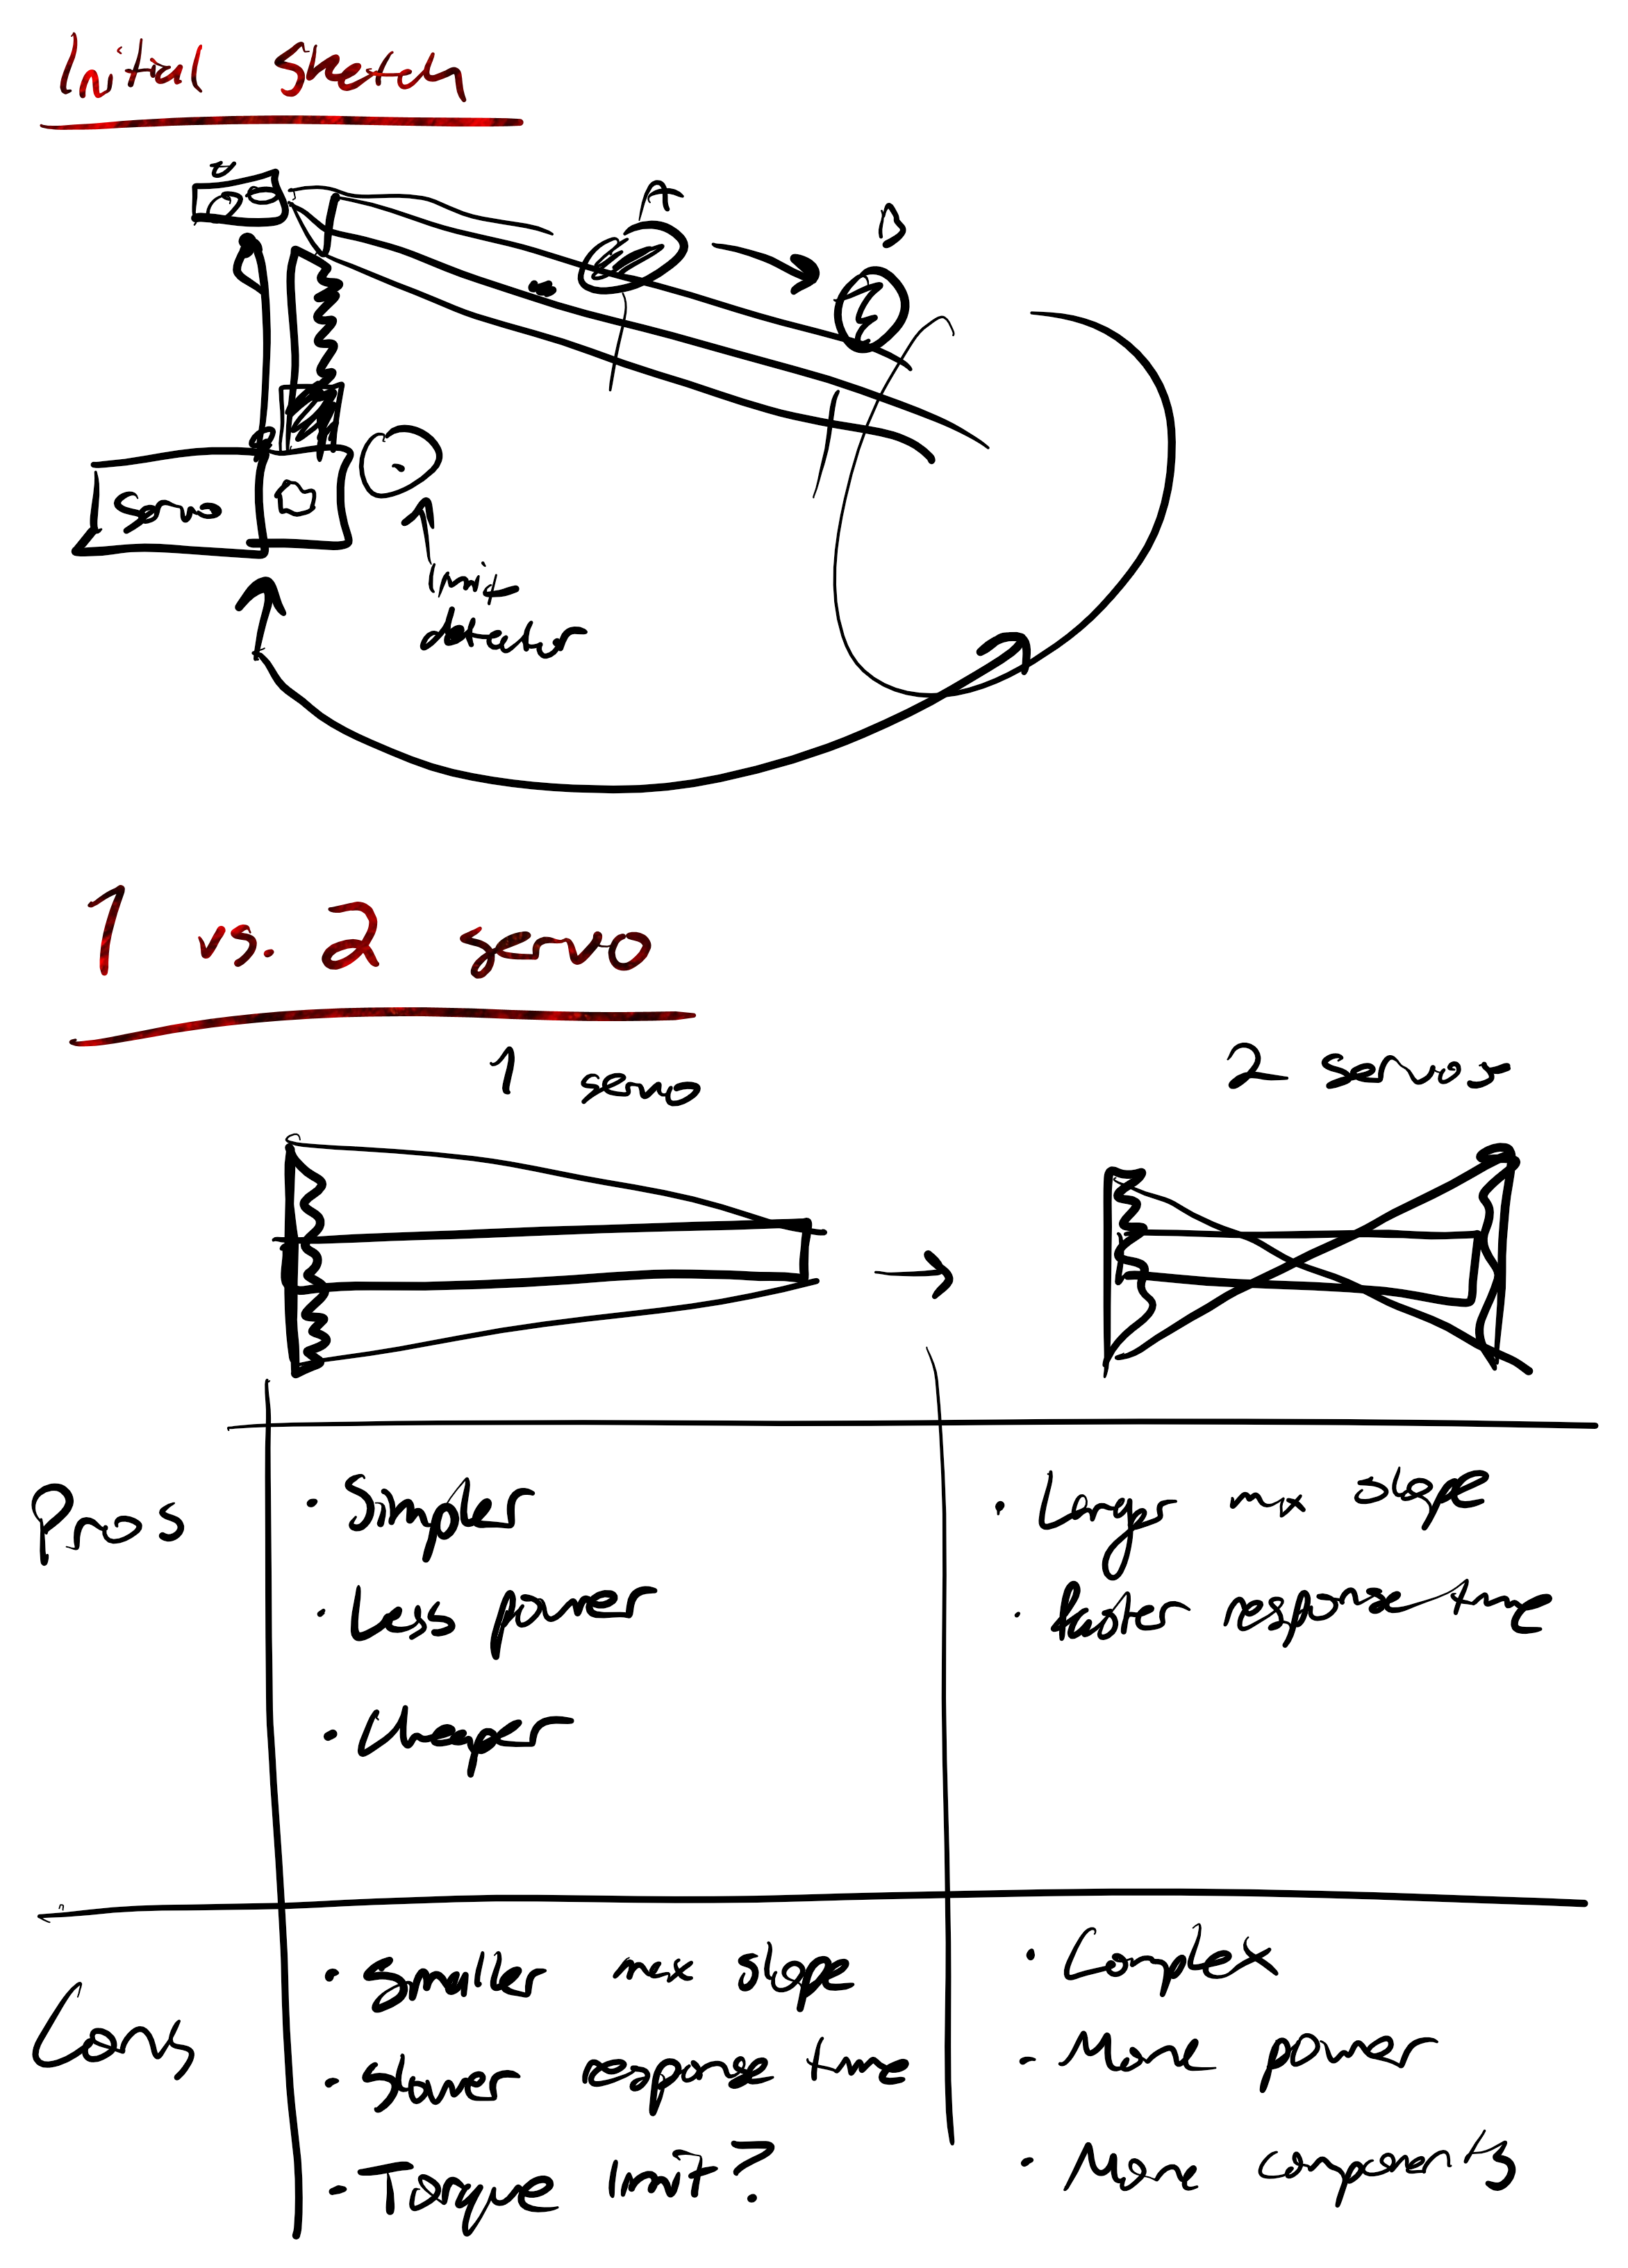 Initial Sketch
A
B
Servo
limit
detector
1 vs. 2 servo
1 servo
2 servos
Pros
• Simpler
• Less power
• Cheaper
• Larger max slope
• faster response time
Cons
• Smaller max slope
• Slower response time
• Torque limit?
• Complex
• More power
• More components